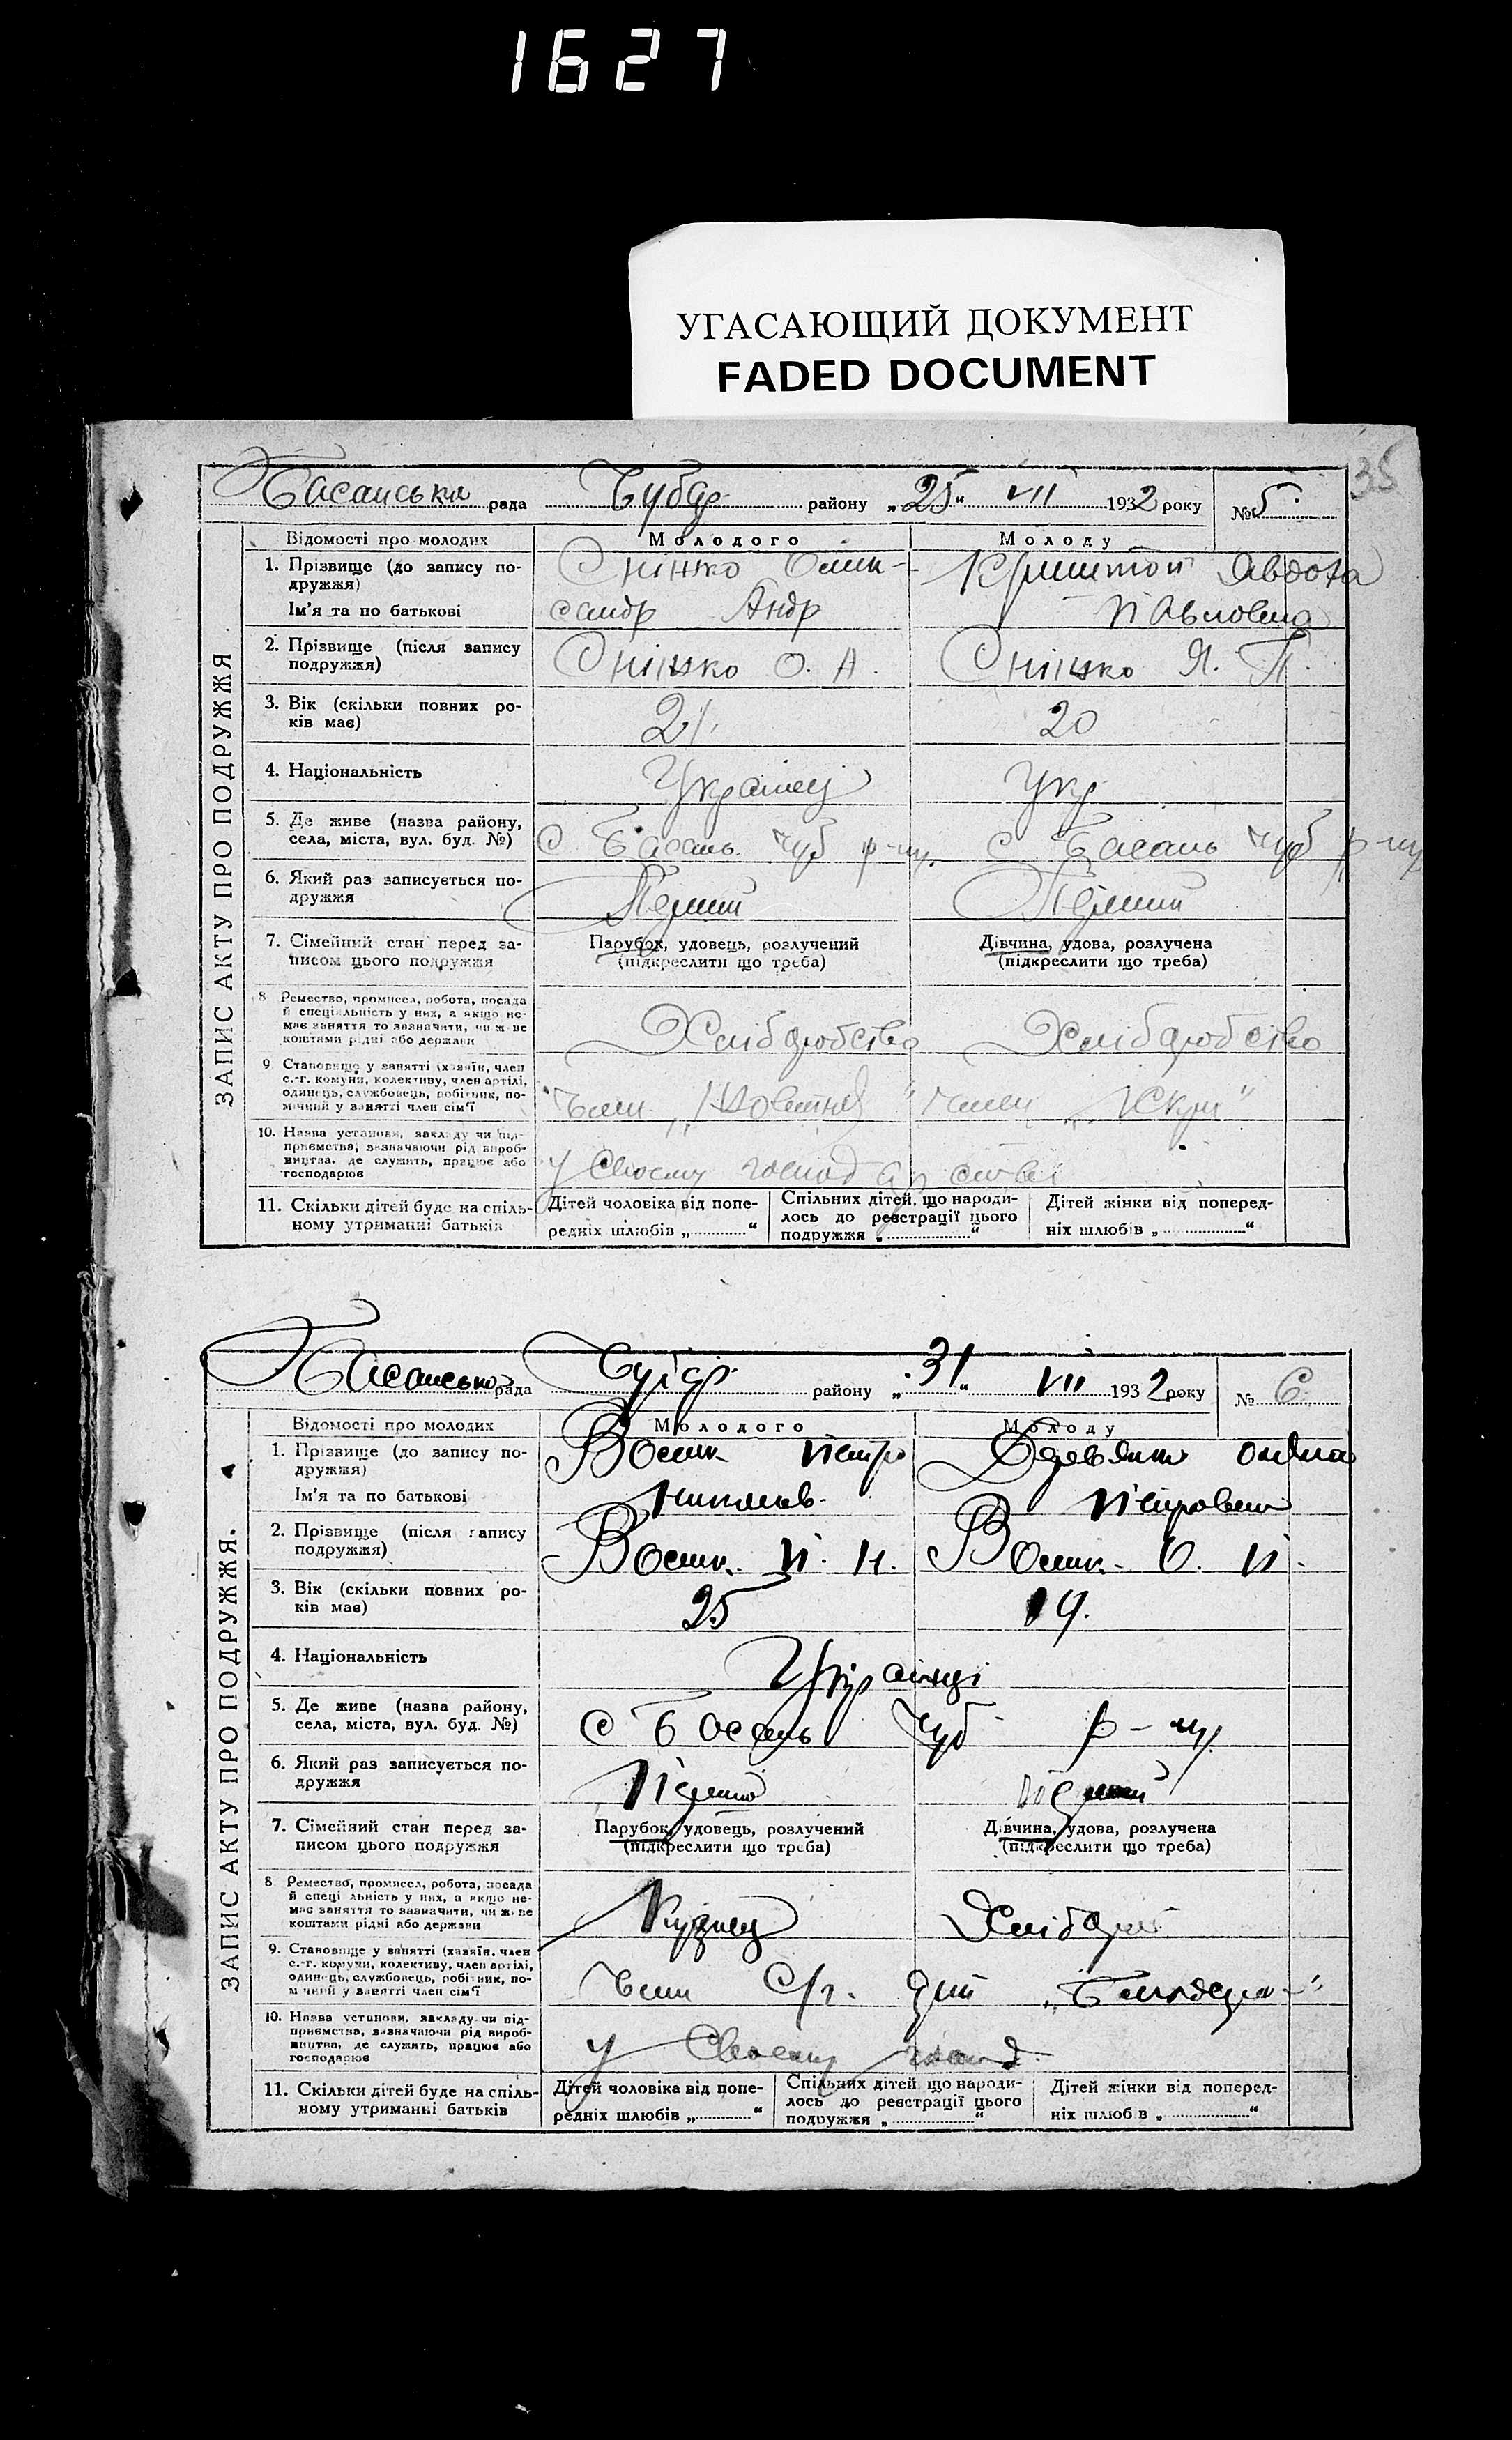 1627
УГАСАЮЩИЙ ДОКУМЕНТ
FADED DOCUMENT
35
Басанська рада Чубар району „25“ VII 1932 року № 5
ЗАПИС АКТУ ПРО ПОДРУЖЖЯ
Відомості про молодих Молодого Молоду
1. Прізвище (до запису по-
дружжя)
Сніжко Олек- Явдоха
Ім'я та по батькові сандр Андр Павловна
2. Прізвище (після запису
подружжя) Сніжко О. А. Сніжко Я. П.
3. Вік (скільки повних ро-
ків має) 21 20
4. Національність Українец Укр
5. Де живе (назва району,
села, міста, вул. буд. №) С Басань Чуб р-ну. С Басань Чуб р-ну
6. Який раз записується по-
дружжя Перший Перший
7. Сімейний стан перед за-
писом цього подружжя
Парубок, удовець, розлучений
(підкреслити що треба)
Дівчина, удова, розлучена
(підкреслити що треба)
8 Ремество, промисел, робота, посада
й спеціальність у них, а якщо не-
має заняття то зазначити, чи живе
коштами рідні або держави
Хліборобство Хліборобство
9. Становище у занятті (хазяїн, член
с.-г. комуни, колективу, член артілі,
одинець, службовець, робітник, по-
мічний у занятті член сім'ї
Член Член
10. Назва установи, закладу чи під-
приємства, зазначаючи рід вироб-
ництва, де служить, працює або
господарює
У своєму господарстві
11. Скільки дітей буде на спіль-
ному утриманні батьків
Дітей чоловіка від попе-
редніх шлюбів „ “
Спільних дітей, що народи-
лось до реєстрації цього
подружжя „ “
Дітей жінки від поперед-
ніх шлюбів „ “
Басансько рада Чубар району „31“ VII 1932 року № 6
ЗАПИС АКТУ ПРО ПОДРУЖЖЯ.
Відомості про молодих Молодого Молоду
1. Прізвище (до запису по-
дружжя)
Петро
Ім'я та по батькові
2. Прізвище (після запису
подружжя) П. Н. О. П.
3. Вік (скільки повних ро-
ків має) 25 19.
4. Національність Українці
5. Де живе (назва району,
села, міста, вул. буд. №) С Басань Чуб р-ну.
6. Який раз записується по-
дружжя Перший Перший
7. Сімейний стан перед за-
писом цього подружжя
Парубок, удовець, розлучений
(підкреслити що треба)
Дівчина, удова, розлучена
(підкреслити що треба)
8 Ремество, промисел, робота, посада
й спеціальність у них, а якщо не-
має заняття то зазначити, чи живе
коштами рідні або держави
Кузнец Хлібороб
9. Становище у занятті (хазяїн, член
с.-г. комуни, колективу, член артілі,
одинець, службовець, робітник, по-
мічний у занятті член сім'ї
Член С/г. арт
10. Назва установи, закладу чи під-
приємства, зазначаючи рід вироб-
ництва, де служить, працює або
господарює
У своєму госпд.
11. Скільки дітей буде на спіль-
ному утриманні батьків
Дітей чоловіка від попе-
редніх шлюбів „ “
Спільних дітей що народи-
лось до реєстрації цього
подружжя „ “
Дітей жінки від поперед-
ніх шлюбів „ “